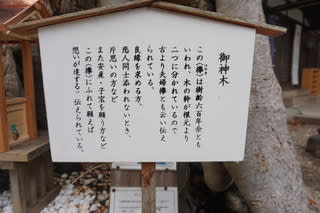 御神木
この(欅)は樹齢六百年余とも
いわれ、木の幹が根元より
二つに分かれているので
古より夫婦欅とも云い伝え
られている。
良縁を求める方、
恋人同士添われないとき、
片思いの方など
また安産・子宝を願う方など
この(欅)にふれて願えば
想いが達すると伝えられている。